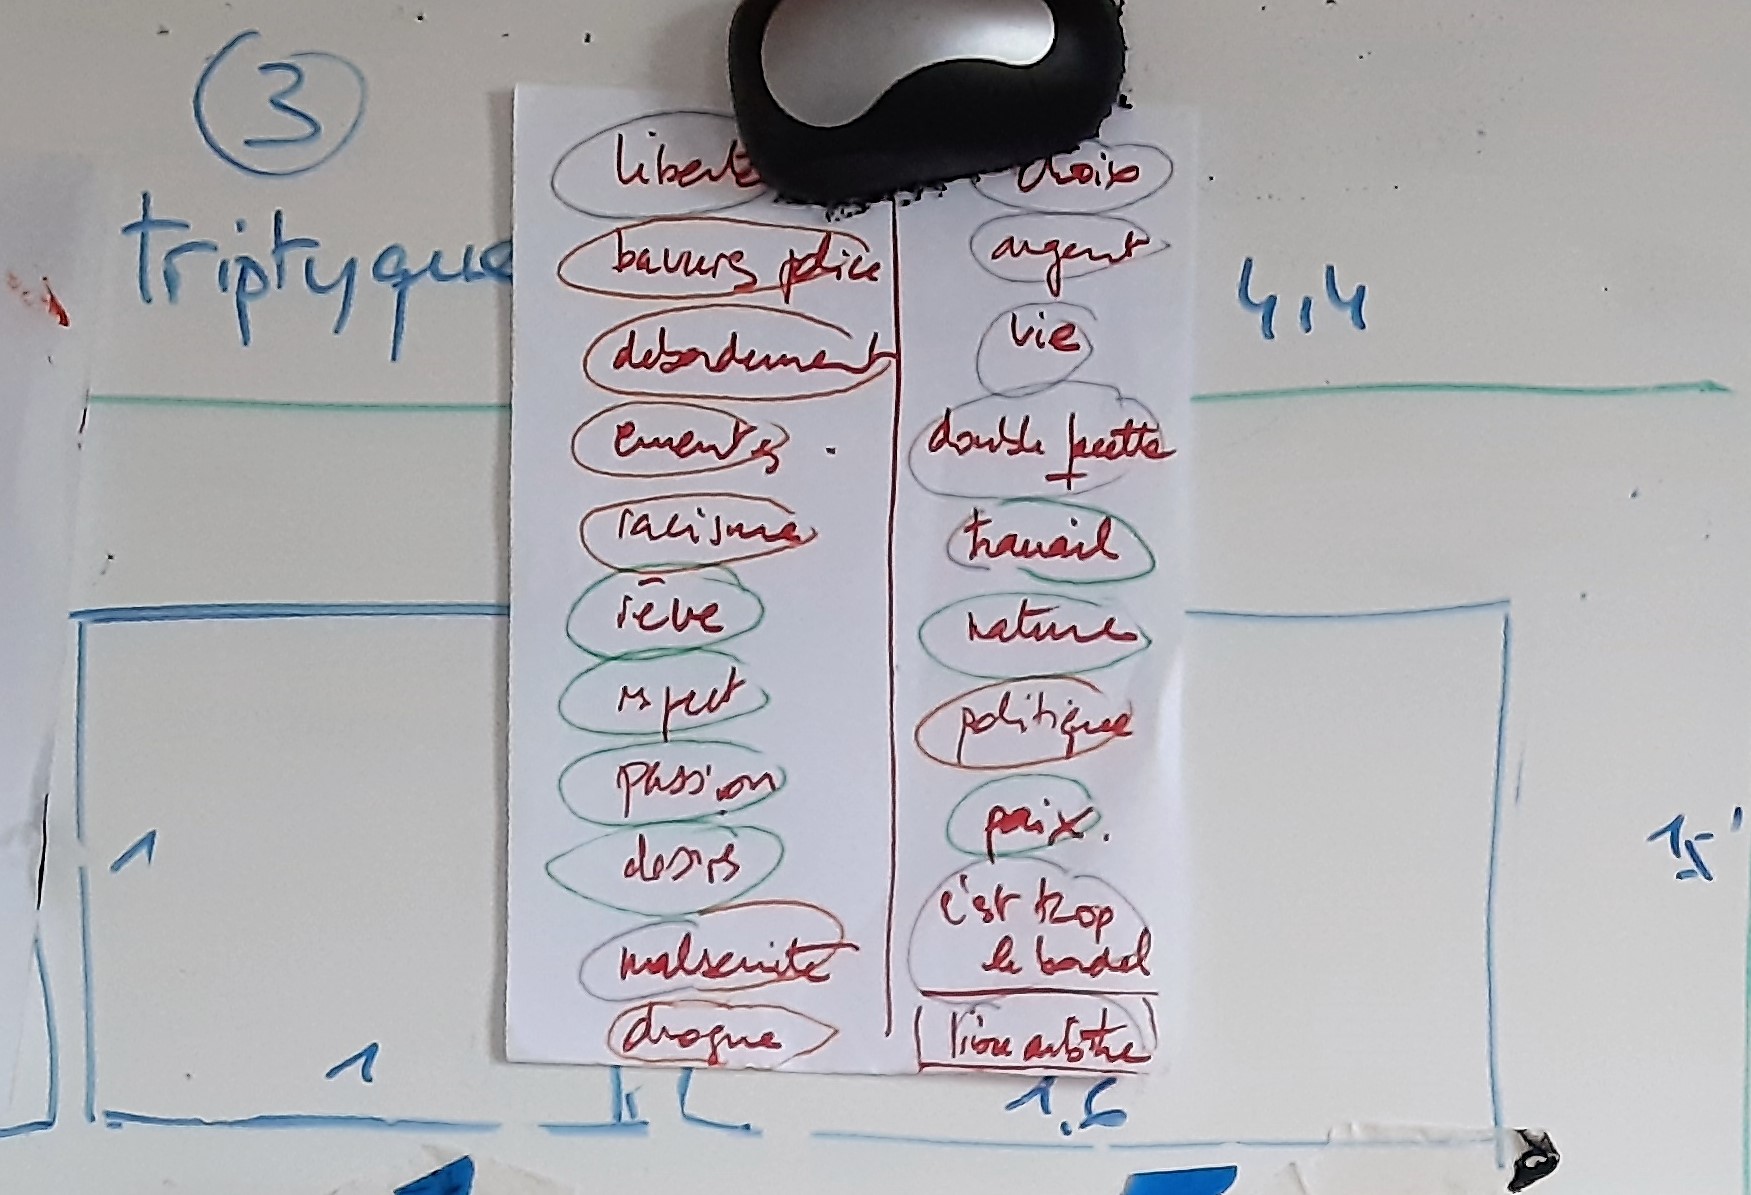 3
triptyque
4,4
liberté
bavures police
debordement
emeutes
racisme
rêve
respect
passion
desirs
drogue
choix
argent
vie
double facette
travail
nature
politique
paix.
c'est trop
le bordel
libre arbitre
1
1
1,6
15'